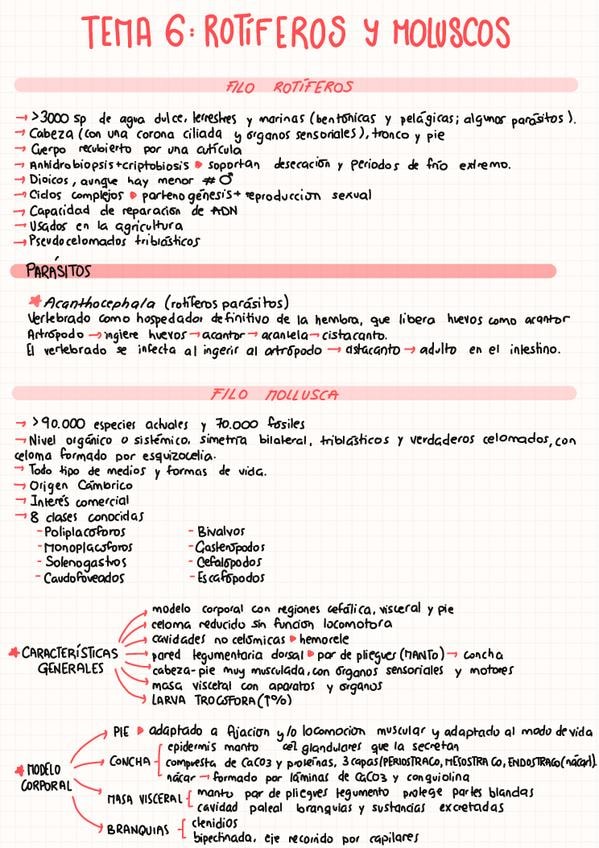 TEMA 6: ROTÍFEROS Y MOLUSCOS
FILO ROTÍFEROS
→ >3000 sp de agua dulce, terrestres y marinas (bentónicas y pelágicas; algunos parásitos).
→ Cabeza (con una corona ciliada y órganos sensoriales), tronco y pie
→ Cuerpo recubierto por una cutícula
→ Anhidrobiopsis+criptobiosis soportan desecación y periodos de frío extremo.
→ Dioicos, aunque hay menor # ♂
→ Ciclos complejos partenogénesis+ reproducción sexual
→ Capacidad de reparación de ADN
→ Usados en la agricultura
→ Pseudocelomados triblásticos
PARÁSITOS
Acanthocephala (rotíferos parásitos)
Vertebrado como hospedador definitivo de la hembra, que libera huevos como acantor
Artrópodo → ingiere huevos → acantor → acantela → cistacanto.
El vertebrado se infecta al ingerir al artrópodo → astacanto → adulto en el intestino.
FILO MOLLUSCA
→ >90.000 especies actuales y 70.000 fósiles
→ Nivel orgánico o sistémico, simetría bilateral, triblásticos y verdaderos celomados, con
celoma formado por esquizocelia.
→ Todo tipo de medios y formas de vida.
→ Origen Cámbrico
→ Interés comercial
→ 8 clases conocidas
- Poliplacóforos - Bivalvos
- Monoplacóforos - Gasterópodos
- Solenogastros - Cefalópodos
- Caudofoveados - Escafópodos
modelo corporal con regiones cefálica, visceral y pie
celoma reducido sin función locomotora
cavidades no celómicas hemocele
CARACTERÍSTICAS GENERALES
pared tegumentaria dorsal par de pliegues (MANTO) → concha
cabeza-pie muy musculada, con órganos sensoriales y motores
masa visceral con aparatos y órganos
LARVA TROCÓFORA (↑%)
PIE adaptado a fijación y/o locomoción muscular y adaptado al modo de vida
epidermis manto cél glandulares que la secretan
CONCHA compuesta de CaCO3 y proteínas, 3 capas (PERIOSTRACO, MESOSTRACO, ENDOSTRACO (nácar).
nácar → formado por láminas de CaCO3 y conquiolina
MODELO CORPORAL
MASA VISCERAL manto par de pliegues tegumento protege partes blandas
cavidad paleal branquias y sustancias excretadas
BRANQUIAS ctenidios
bipectinada, eje recorrido por capilares